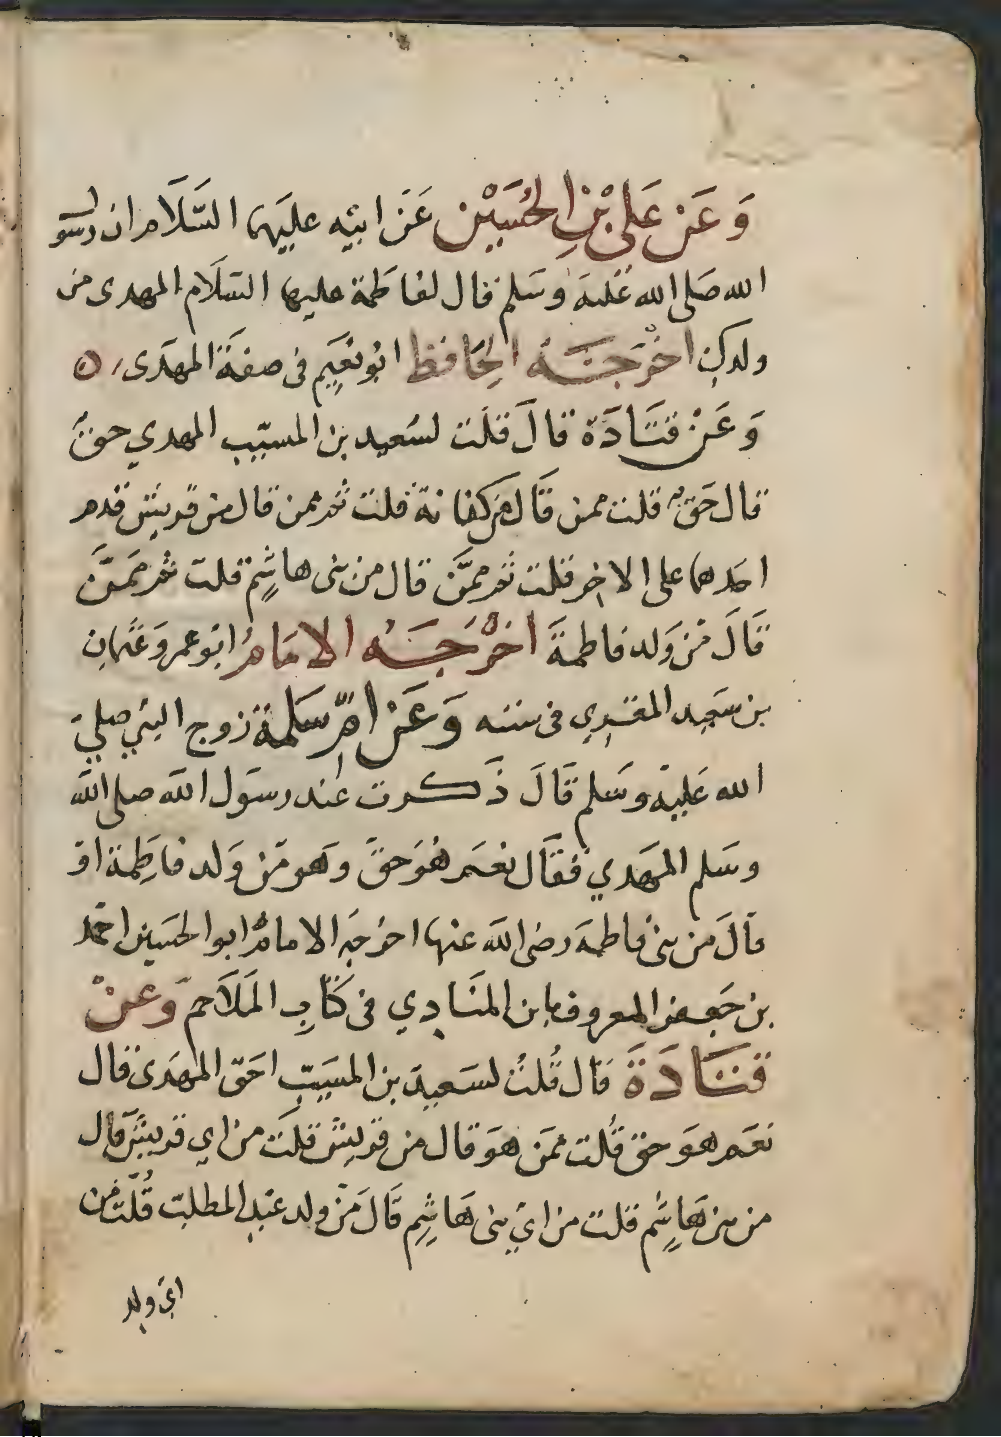 وَعَن عَلى بْنِ الحُسَيْن عَن ابيْه عليهَما السَّلَام ان رسول
الله صَلى الله عَليهَ وسَلم قال لفاطمة عليها السَّلَام المهدى من
ولدكِ اخْرَجَهُ الحَافظ ابُو نعَيم فى صفَة المهَدى ۵
وَعَنْ قتَادَة قالَ قلَت لسَعيد بن المسيّب المهدي حقٌ
قال حَقٌ قلت ممن قَال من كنانة قلت ثم ممن قال من قريش قدم
احدهما على الاخر قلت ثم ممَّن قال من بنى هاشِم قلت ثم ممَّن
قَالَ مْن وَلد فاطمةَ اخْرَجَهُ الامَامُ ابو عمرو عثمان
بن سَعِيد المقرِي فى سننه وَعَن امّ سَلمة زوج النبي صلى
الله عَليْه وسَلم قَالَ ذَكرت عند رسَول الله صلى الله
وسَلم المهَدي فقَال نعَم هوَ حَقٌ وهو مَن وَلد فاطِمة او
قالَ من بنى فاطمةَ رضى الله عنها اخرجَه الامامُ ابو الحسَين احمد
بن جَعفر المعروف بابن المنَادِي فى كتَابِ المَلَاحم وَعَنْ
قتَادَةَ قال قُلتُ لسَعيد بن المسَيبّ احَقّ المهَدى قال
نعَم هوَ حق قُلت ممَن هوَ قال من قريش قلتَ من اي قريش قال
من بنى هَاشِم قلت من ايّ بنى هَاشِم قَالَ مَن ولد عَبد المطلب قُلت من
اىّ ولد